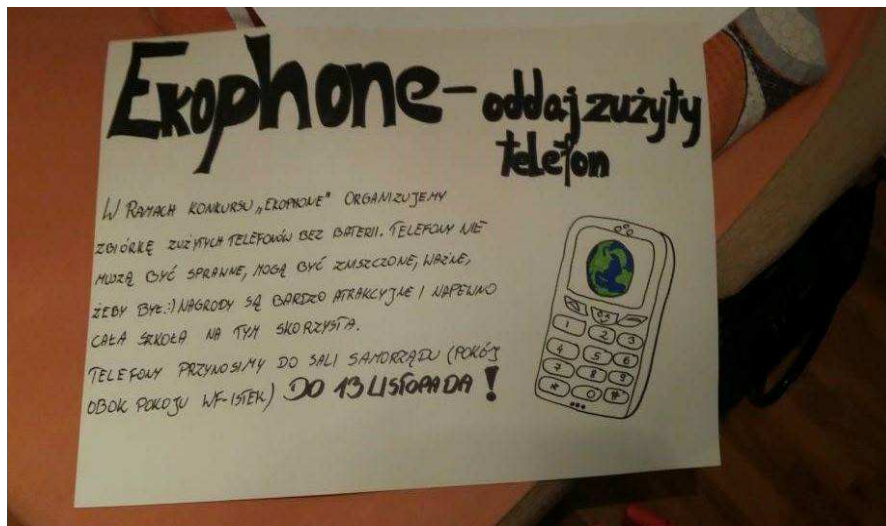 Ekophone - oddaj zużyty
telefon
W RAMACH KONKURSU „EKOPHONE" ORGANIZUJEMY
ZBIÓRKĘ ZUŻYTYCH TELEFONÓW BEZ BATERII. TELEFONY NIE
MUSZĄ BYĆ SPRAWNE, MOGĄ BYĆ ZNISZCZONE, WAŻNE,
ŻEBY BYŁ:) NAGRODY SĄ BARDZO ATRAKCYJNE I NAPEWNO
CAŁA SZKOŁA NA TYM SKORZYSTA.
TELEFONY PRZYNOSIMY DO SALI SAMORZĄDU (POKÓJ
OBOK POKOJU WF-ISTEK) DO 13 LISTOPADA!
1 2 3
4 5 6
7 8 9
* 0 #